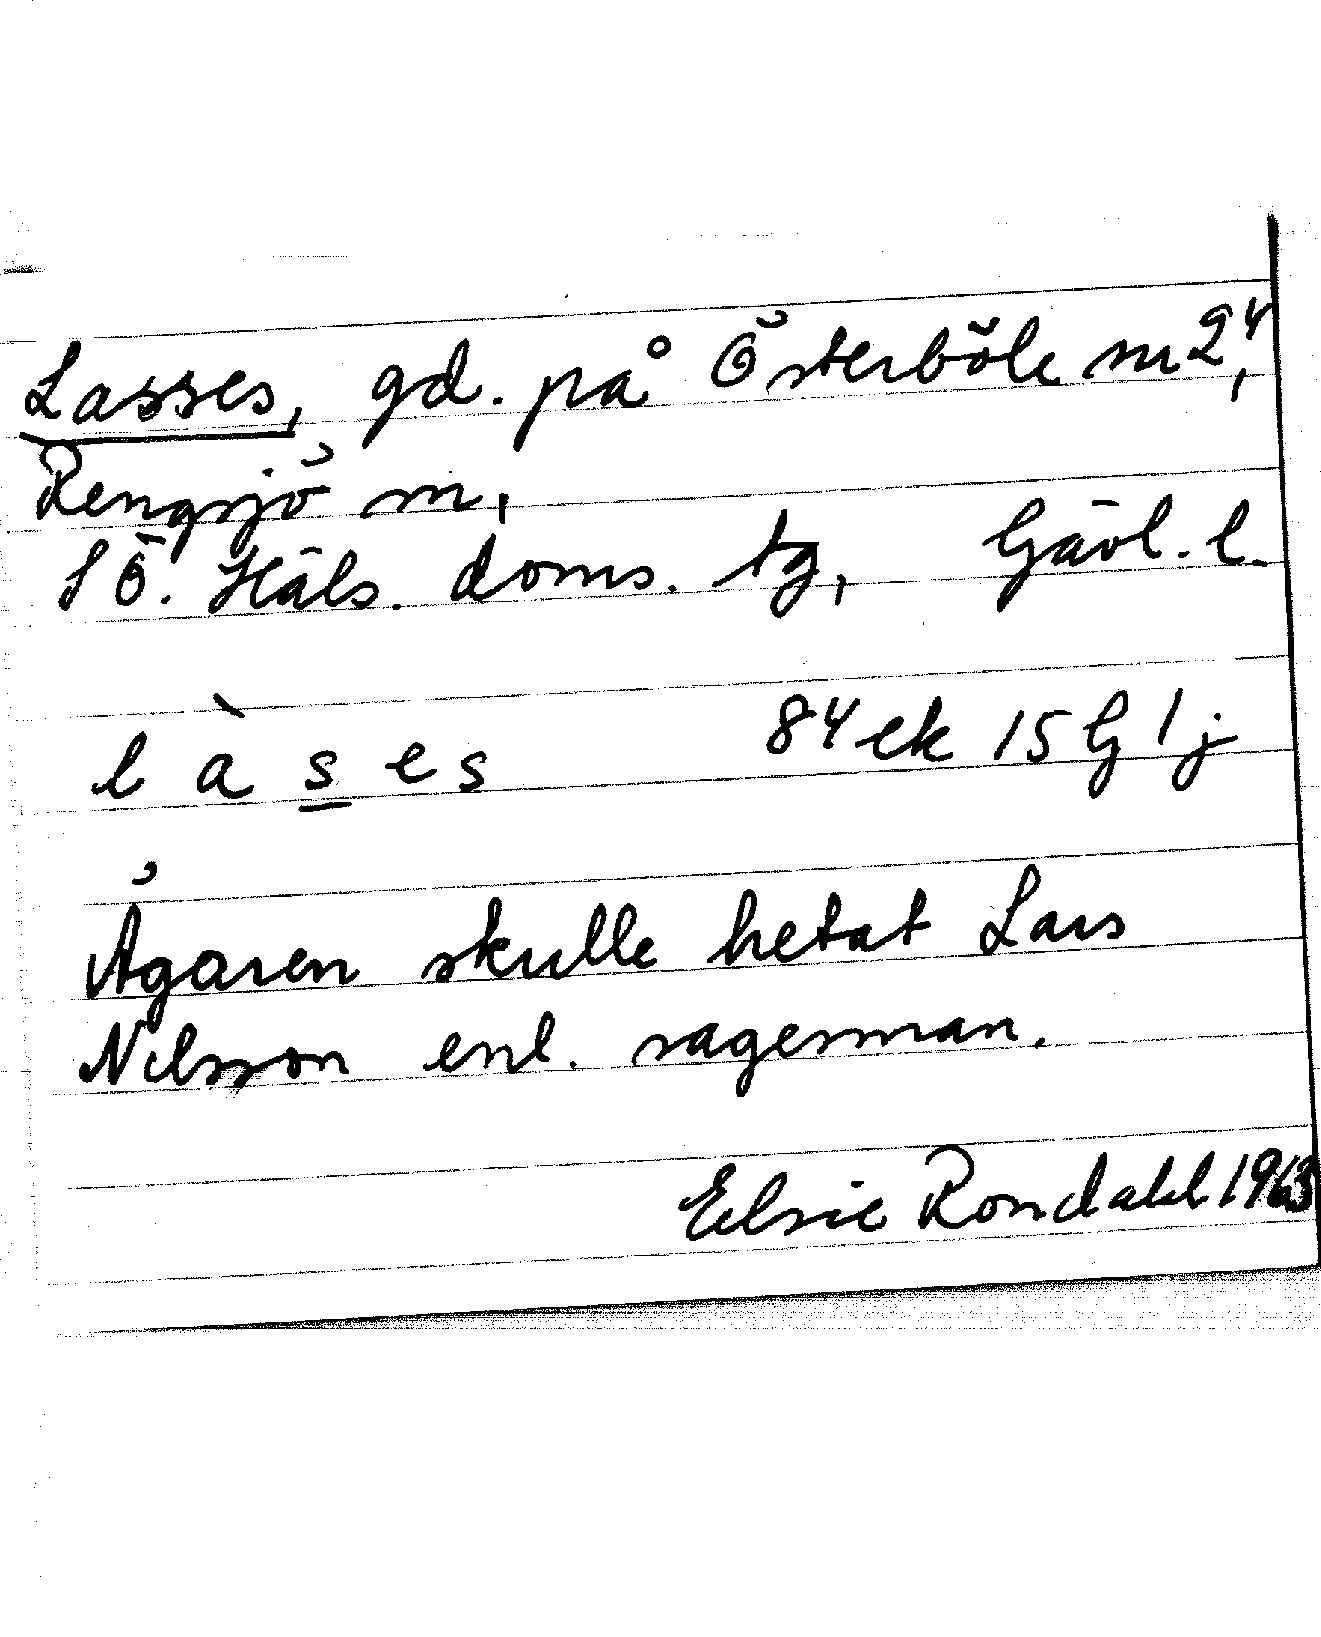 Lasses, gd. på Österböle m 2⁴,
Rengsjö sn,
SÖ. Häls. doms. tg, Gävl. l.
l à s e s 84ek 15 G 1 j
Ägaren skulle hetat Lars
Nilsson enl. sagesman.
Elsie Rondahl 1963